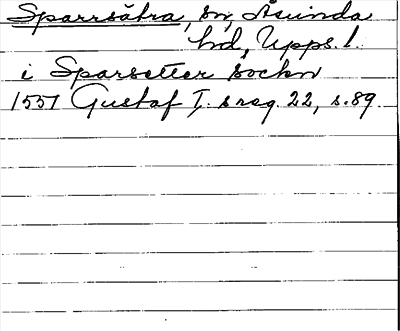 Sparrsätra, sn, Åsunda
hd, Upps. l.
i Sparsetter sockn
1557 Gustaf I:s reg. 22, s. 89.